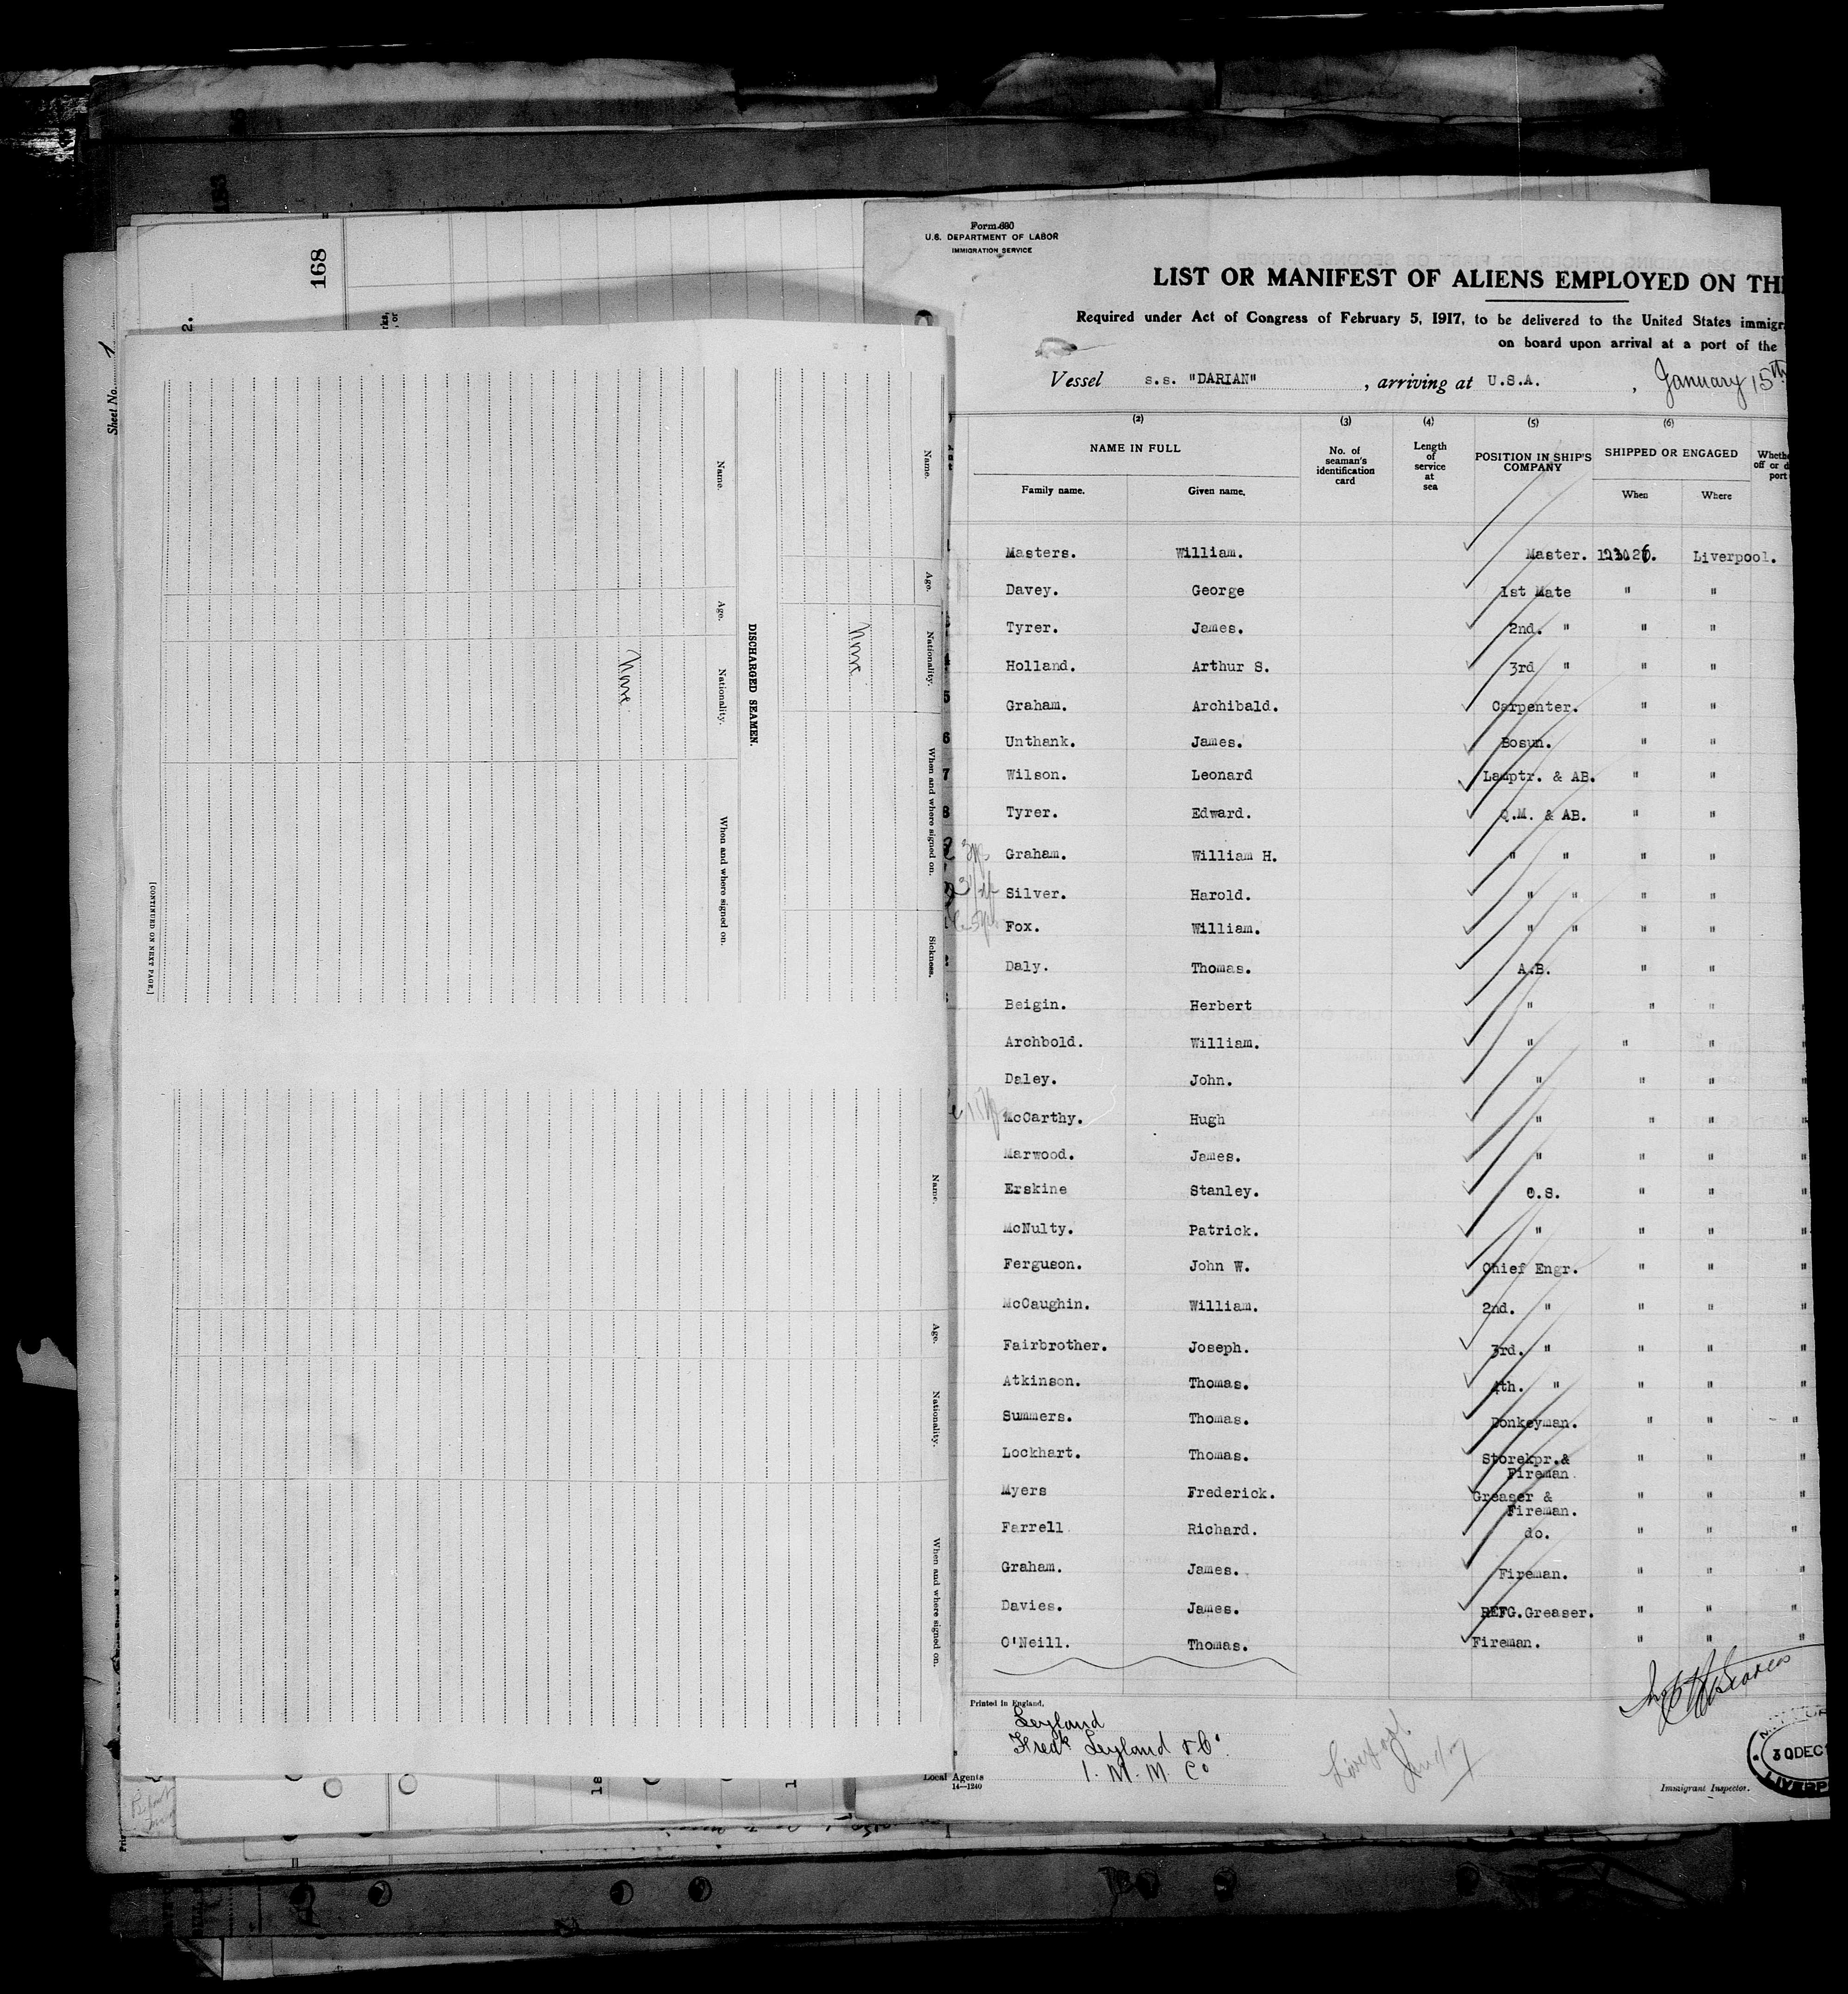 168
2.
Sheet No. 1
Name.
Age.
Nationality.
When and where signed on.
Sickness.
None
DISCHARGED SEAMEN.
Name.
Age.
Nationality.
When and where signed on.
None
[CONTINUED ON NEXT PAGE.]
Name.
Age.
Nationality.
When and where signed on.
Form 680
U.S. DEPARTMENT OF LABOR
IMMIGRATION SERVICE
LIST OR MANIFEST OF ALIENS EMPLOYED ON TH
Required under Act of Congress of February 5, 1917, to be delivered to the United States immigr
on board upon arrival at a port of the
Vessel s.s. "DARIAN" , arriving at U.S.A. , January 15th
(2) (3) (4) (5) (6)
NAME IN FULL No. of seaman's identification card Length of service at sea POSITION IN SHIP'S COMPANY SHIPPED OR ENGAGED Wheth off or d port
Family name. Given name. When Where
Masters. William. Master. Liverpool.
Davey. George 1st Mate " "
Tyrer. James. 2nd. " " "
Holland. Arthur S. 3rd " " "
5 Graham. Archibald. Carpenter. " "
6 Unthank. James. Bosun. " "
7 Wilson. Leonard Lamptr. & AB. " "
8 Tyrer. Edward. Q.M. & AB. " "
Graham. William H. " " " "
Silver. Harold. " " " "
Fox. William. " " " "
Daly. Thomas. A.B. " "
Beigin. Herbert " " " "
Archbold. William. " " " "
Daley. John. " " " "
McCarthy. Hugh " " " "
Marwood. James. " " " "
Erskine Stanley. O.S. " " "
McNulty. Patrick. " " " "
Ferguson. John W. Chief Engr. " " "
McCaughin. William. 2nd. " " " "
Fairbrother. Joseph. 3rd. " " " "
Atkinson. Thomas. 4th. " " " "
Summers. Thomas. Donkeyman. " " "
Lockhart. Thomas. Storekpr.& Fireman " " "
Myers Frederick. Greaser & Fireman. " " "
Farrell Richard. do. " " "
Graham. James. Fireman. " " "
Davies. James. REFG.Greaser. " " "
O'Neill. Thomas. Fireman. " " "
Printed in England.
Leyland
Fredk Leyland & Co.
I. M. M. Co
Local Agents
14—1240
30 DEC
LIVERP
Immigrant Inspector.